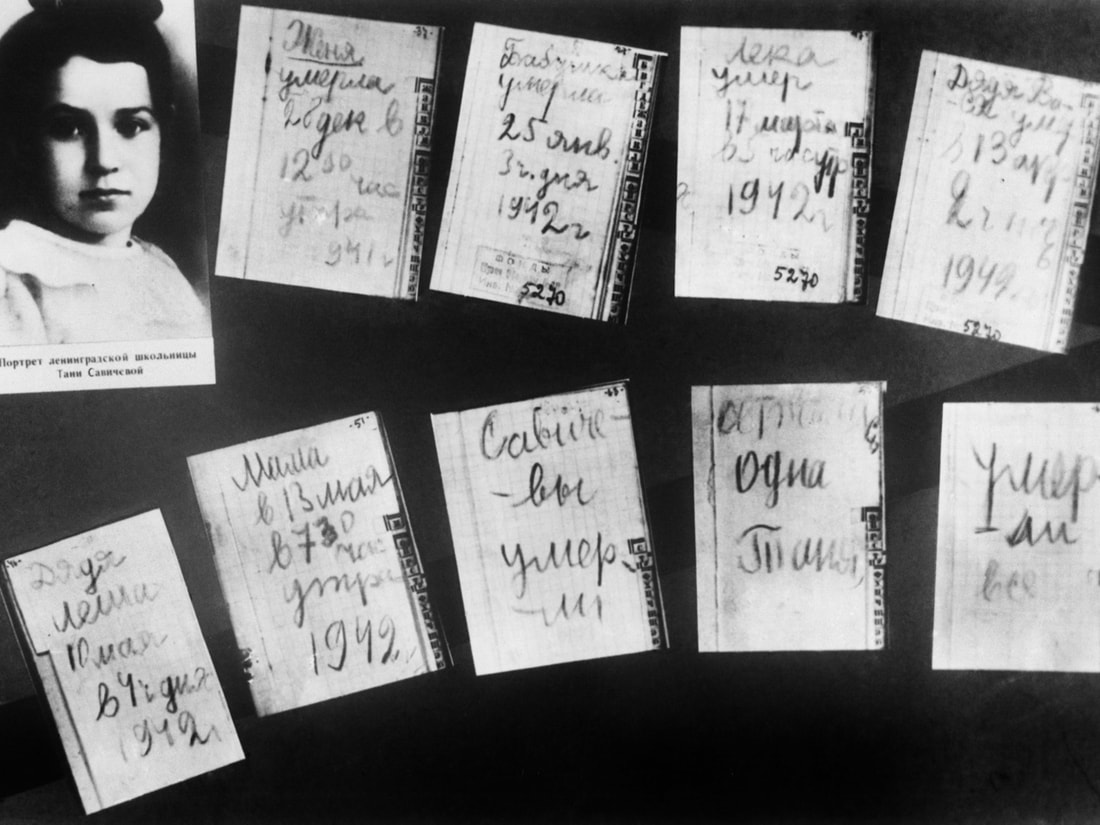 Портрет ленинградской школьницы
Тани Савичевой
Женя
умерла
28 дек в
12 30 час
утра
1941 г
Бабушка
умерла
25 янв.
3 ч. дня
1942 г
ФОНДЫ
5270
Лека
умер
17 марта
в 5 час утр
1942 г
5270
Дядя Ва-
-ся умер
в 13 апр
2 ч ночь
1942 г
5270
Дядя
Леша
10 мая
в 4 ч дня
1942 г
Мама
в 13 мая
в 7 30 час
утра
1942
Савиче-
-вы
умер-
-ли
умер-
-ли
все
осталась
одна
Таня